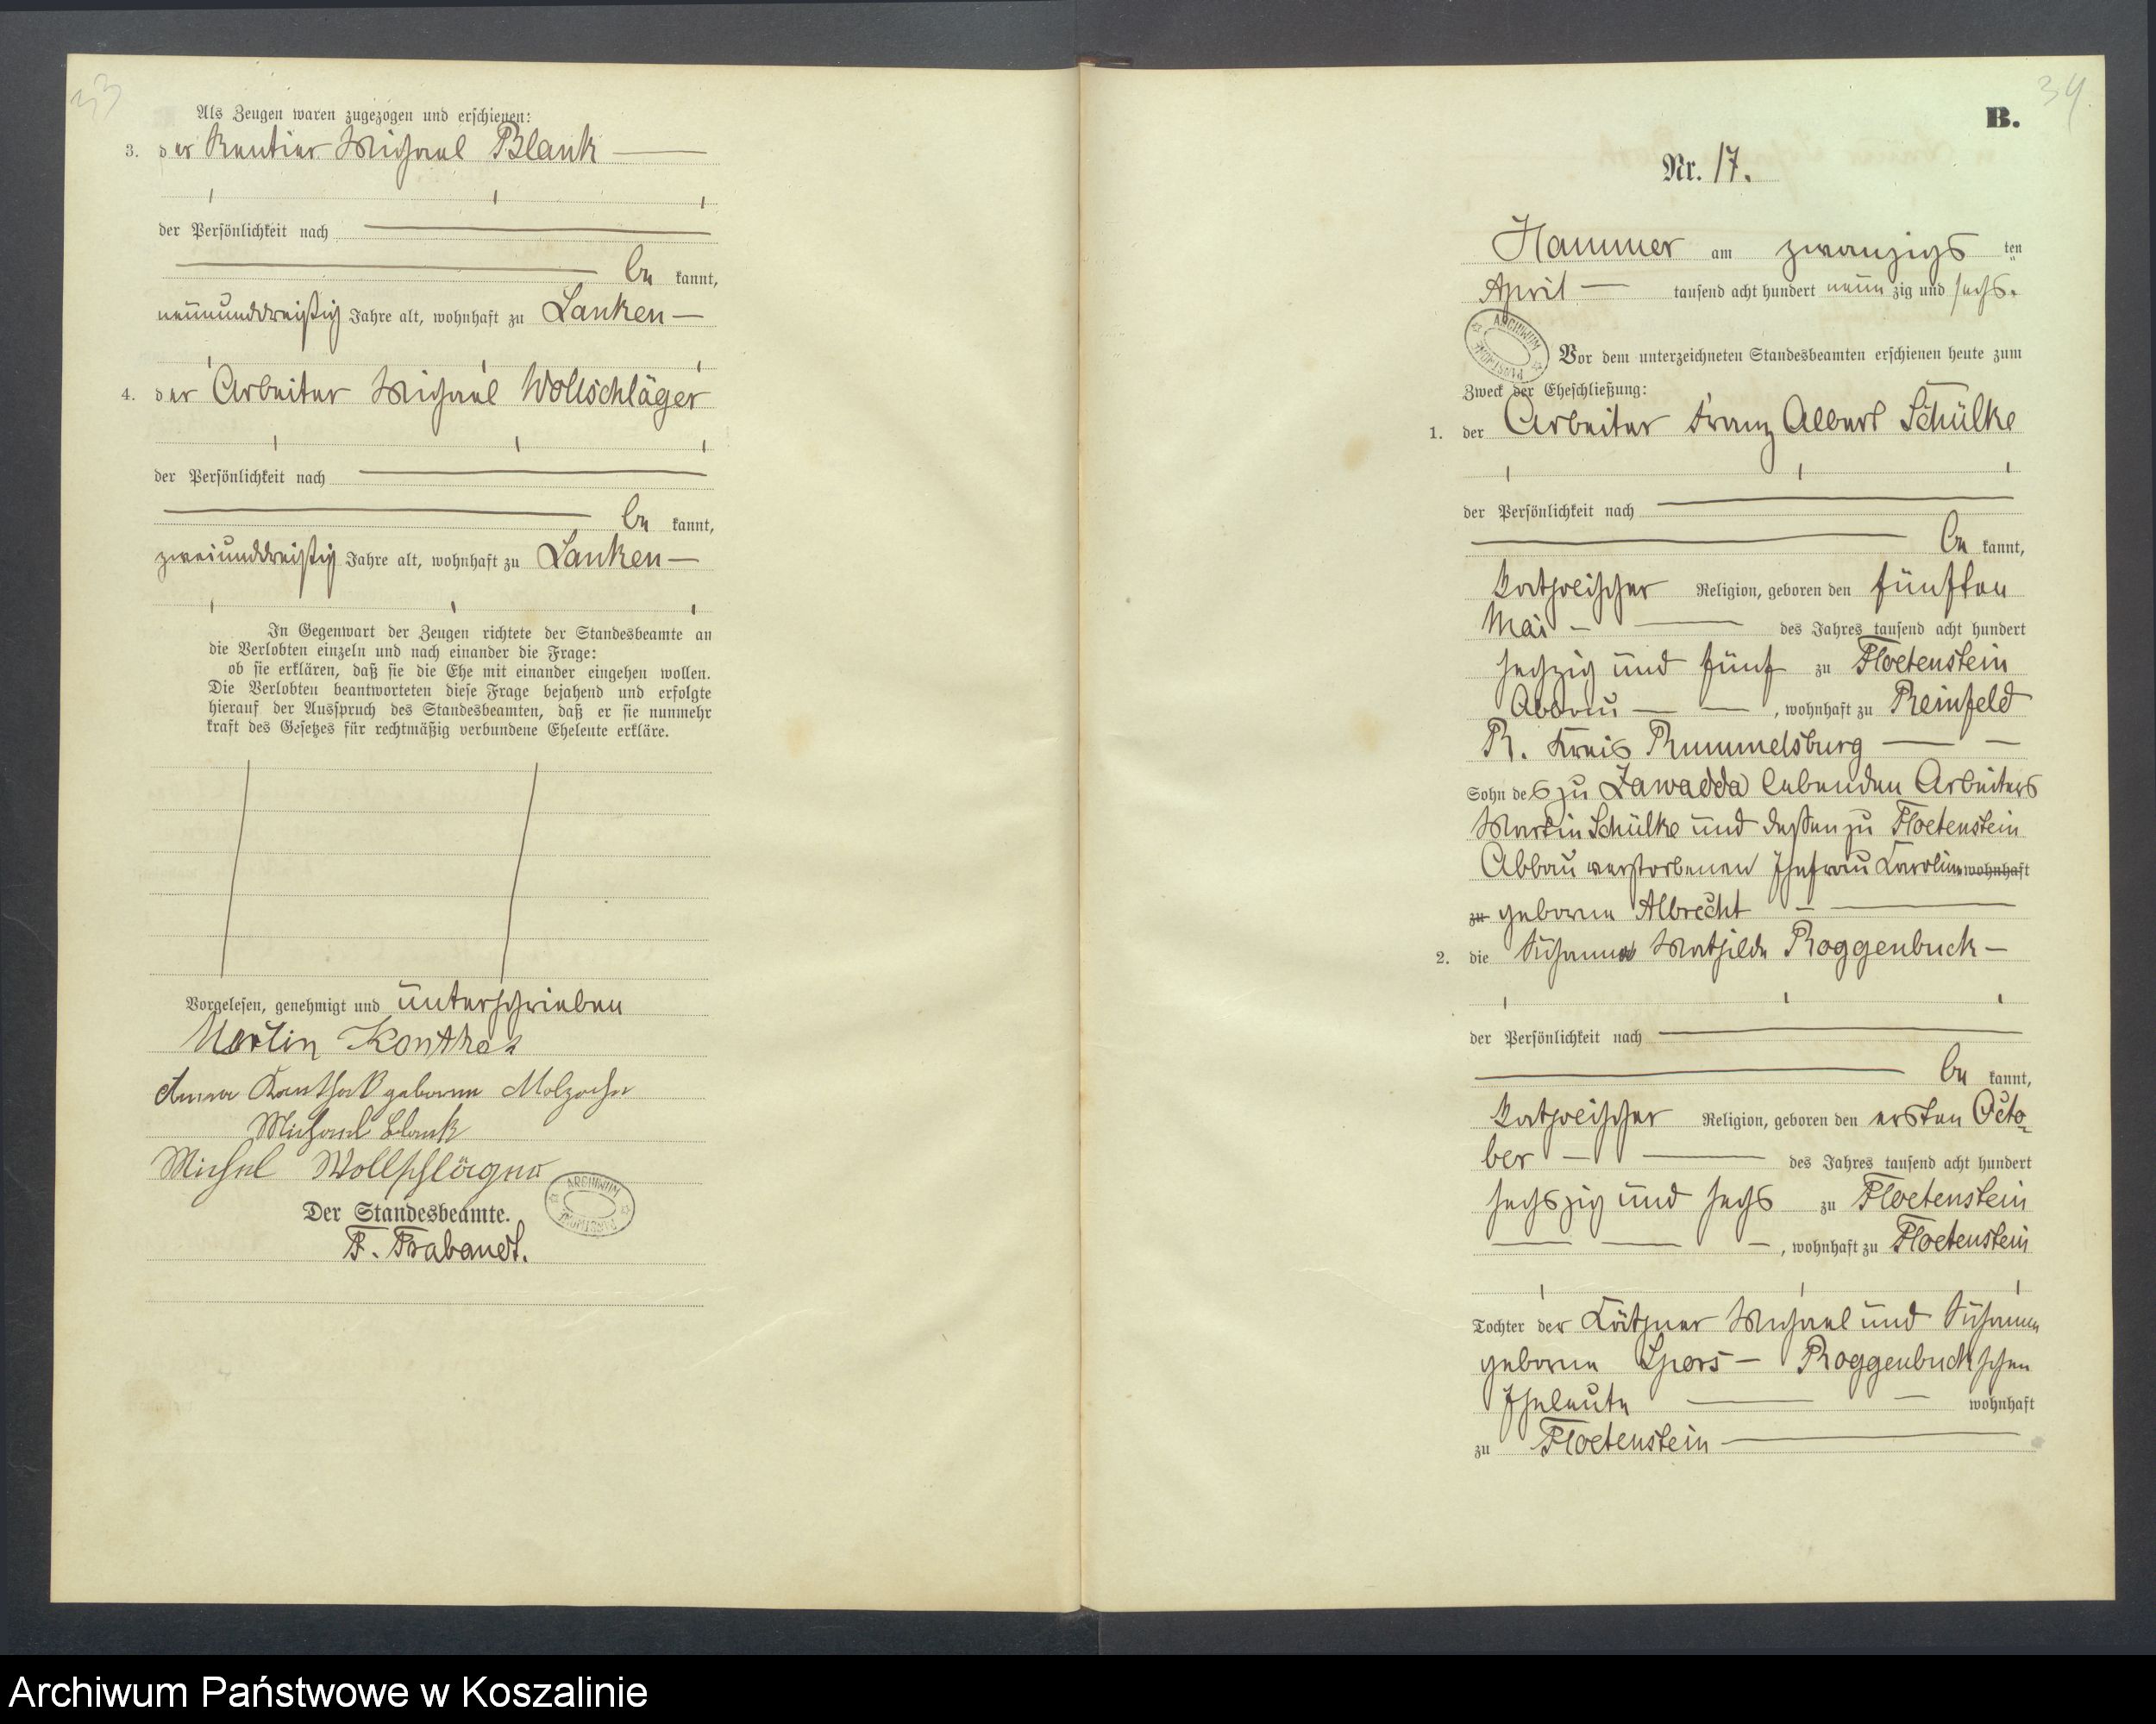 33
Als Zeugen waren zugezogen und erschienen:
3. der Rentier Michael Blank —
der Persönlichkeit nach —
— be kannt,
neununddreißig Jahre alt, wohnhaft zu Lanken —
4. der Arbeiter Michael Wollschläger
der Persönlichkeit nach —
— be kannt,
zweiunddreißig Jahre alt, wohnhaft zu Lanken —
In Gegenwart der Zeugen richtete der Standesbeamte an
die Verlobten einzeln und nach einander die Frage:
ob sie erklären, daß sie die Ehe mit einander eingehen wollen.
Die Verlobten beantworteten diese Frage bejahend und erfolgte
hierauf der Ausspruch des Standesbeamten, daß er sie nunmehr
kraft des Gesetzes für rechtmäßig verbundene Eheleute erkläre.
Vorgelesen, genehmigt und unterschrieben
Martin Konthak
Anna Kanthak geborne Molzahn
Michael Blank
Michel Wollschläger
ARCHIWUM PAŃSTWOWE
Der Standesbeamte.
F. Trabandt.
34.
B.
Nr. 17.
Hammer am zwanzigs ten
April — tausend acht hundert neun zig und sechs.
ARCHIWUM PAŃSTWOWE
Vor dem unterzeichneten Standesbeamten erschienen heute zum
Zweck der Eheschließung:
1. der Arbeiter Franz Albert Schülke
der Persönlichkeit nach —
— be kannt,
katholischer Religion, geboren den fünften
Mai — — des Jahres tausend acht hundert
sechzig und fünf zu Floetenstein
Abbau — — , wohnhaft zu Reinfeld
R. Kreis Rummelsburg — —
Sohn des zu Zawadda lebenden Arbeiters
Martin Schülke und dessen zu Floetenstein
Abbau verstorbenen Ehefrau Karoline wohnhaft
zu geborne Albrecht — —
2. die Susanna Mathilde Roggenbuck —
der Persönlichkeit nach —
— be kannt,
katholischer Religion, geboren den ersten Octo-
ber — — des Jahres tausend acht hundert
sechszig und sechs zu Floetenstein
— — — , wohnhaft zu Floetenstein
Tochter der Käthner Michael und Susanna
geborne Spors — Roggenbuckschen
Eheleute — — wohnhaft
zu Floetenstein —
Archiwum Państwowe w Koszalinie